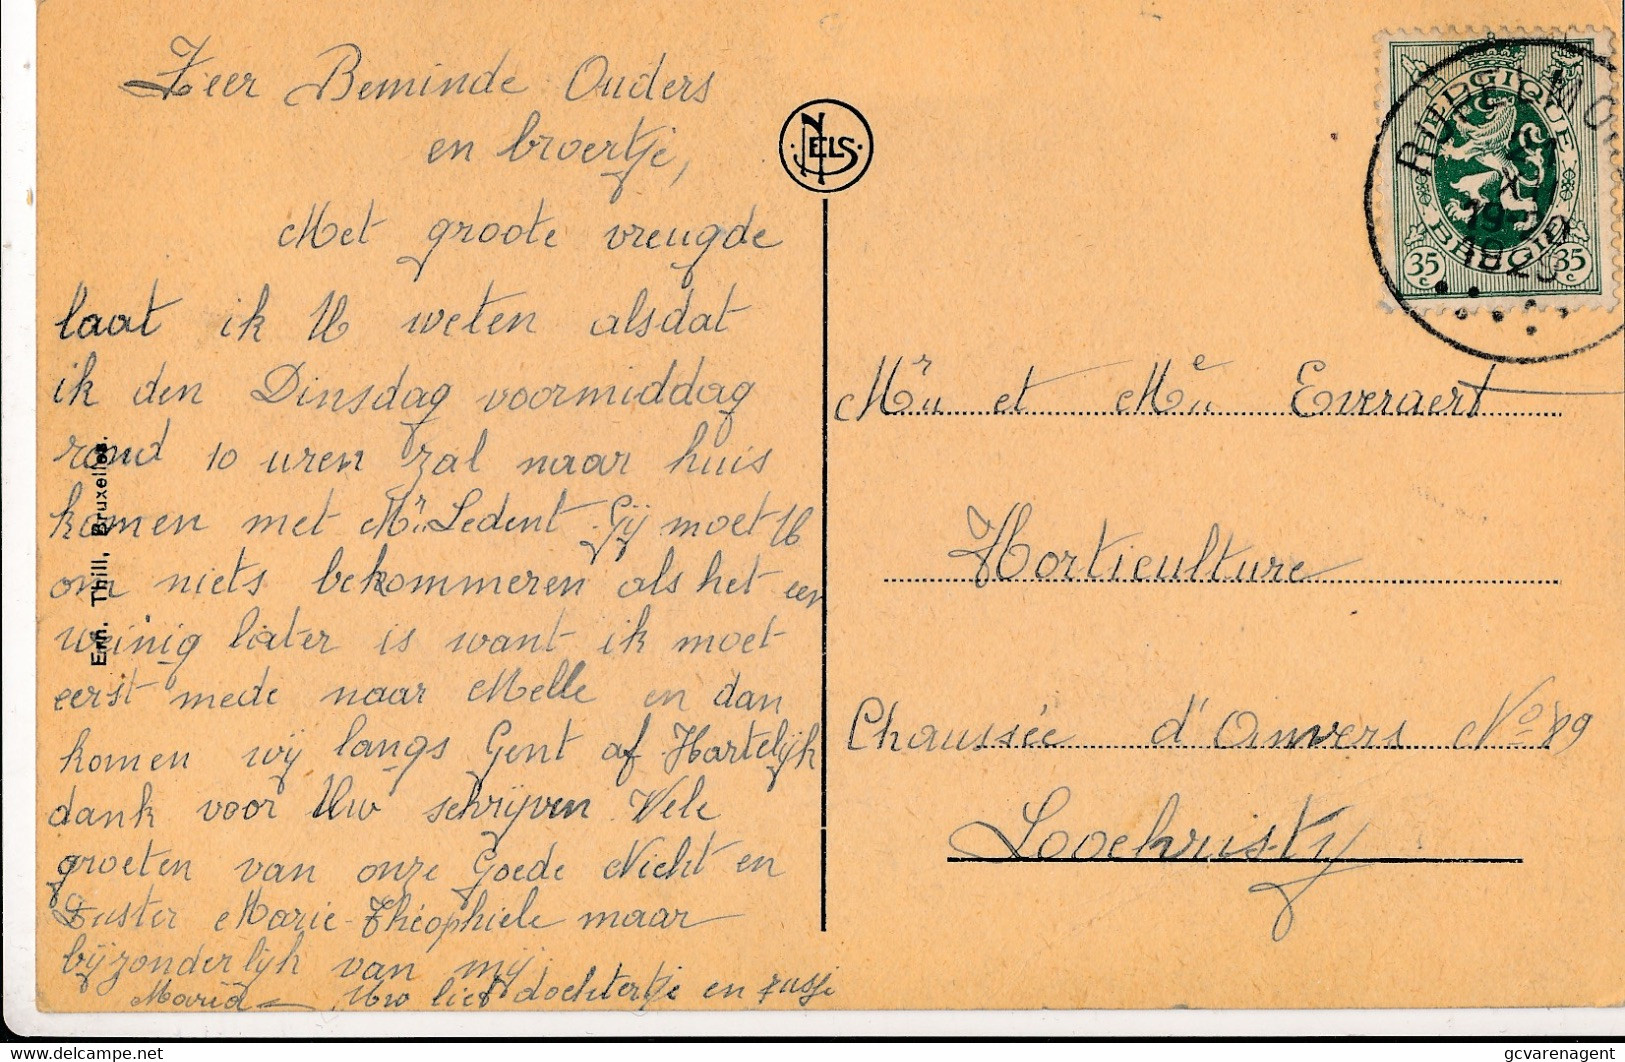 Zeer Beminde Ouders
en broertje,
Met groote vreugde
laat ik U weten alsdat
ik den Dinsdag voormiddag
rond 10 uren zal naar huis
komen met Mr. Ledent. Gij moet U
om niets bekommeren als het een
weinig later is want ik moet
eerst mede naar Melle en dan
komen wij langs Gent af. Hartelijk
dank voor Uw schrijven Vele
groeten van onze Goede Nicht en
Zuster Marie-Théophiele maar
bijzonderlijk van mij
Maria — Uw lief dochtertje en zusje
Ern. Thill, Bruxelles.
NELS
BELGIQUE
BELGIE
35 c
35 c
19-20
1929
Mr et Me Everaert
Horticulture
Chaussée d'Anvers No 89
Loochristy
www.delcampe.net
gcvarenagent